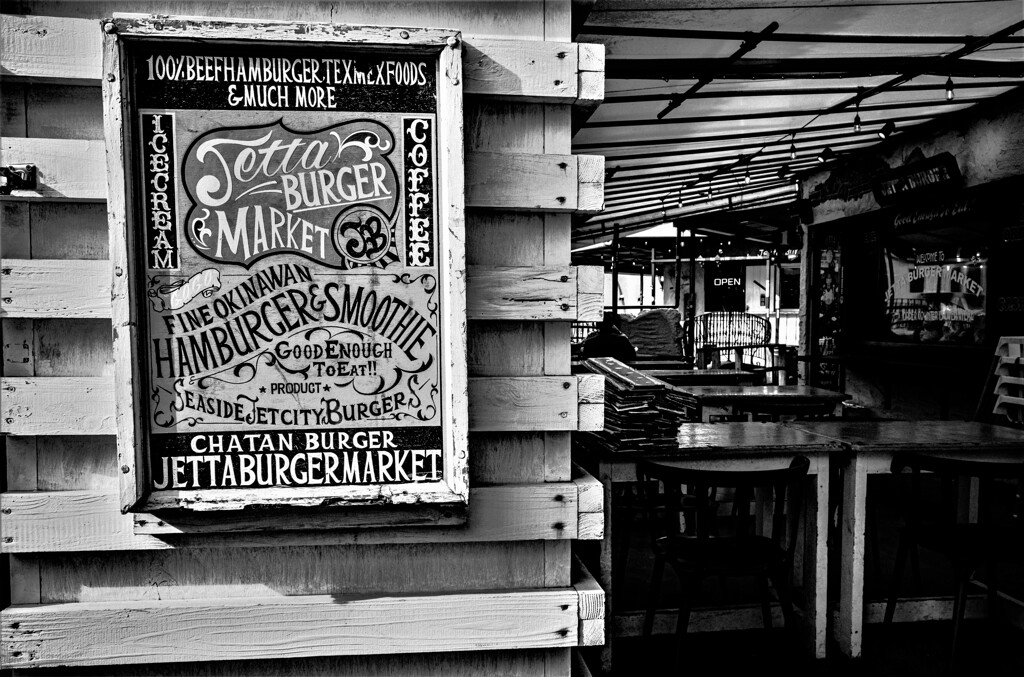 100% BEEF HAMBURGER, TEX mex FOODS,
& MUCH MORE
ICECREAM
COFFEE
Jetta
BURGER
MARKET
JB
FINE OKINAWAN
HAMBURGER & SMOOTHIE
GOOD ENOUGH
TO EAT!!
★ PRODUCT ★
SEASIDE JETCITY BURGERS
CHATAN BURGER
JETTABURGERMARKET
OPEN
WELCOME TO
JETTA BURGER MARKET